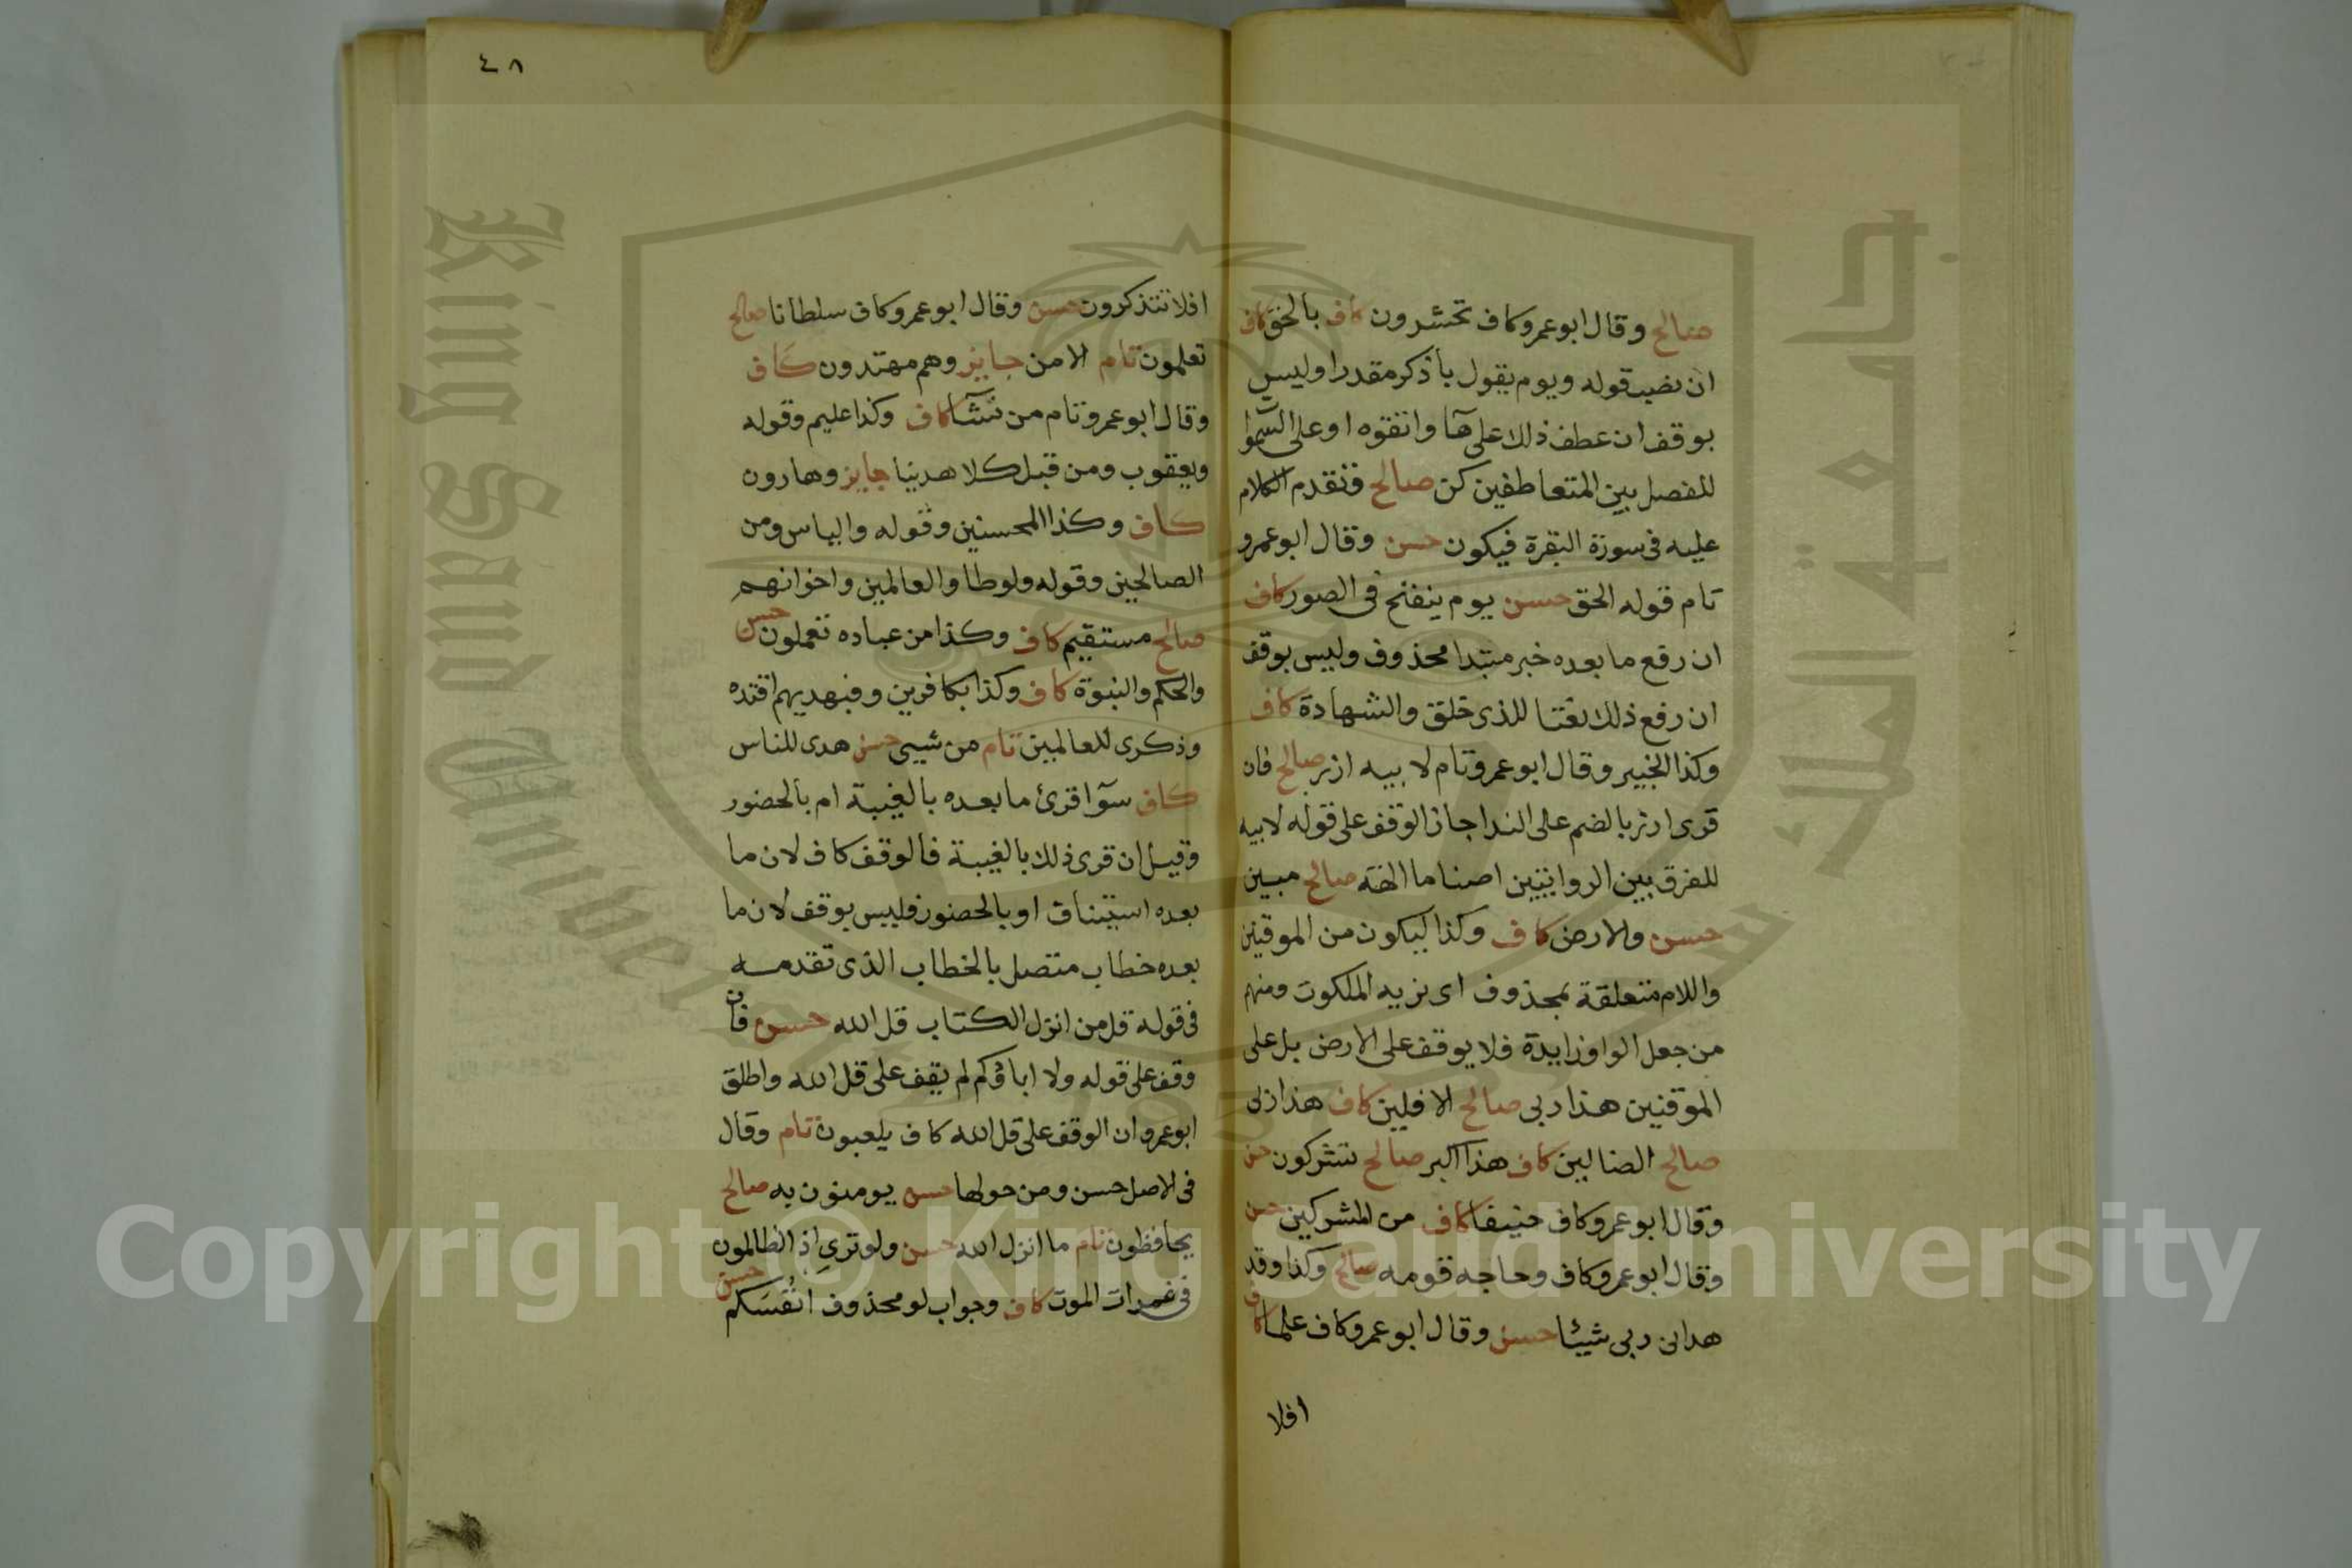 صالح وقال ابو عمرو كاف تحشرون كاف بالحق كاف
ان نصب قوله ويوم يقول باذكر مقدرا وليس
بوقف ان عطف ذلك على هآ واتقوه او على السموا
للفصل بين المتعاطفين كن صالح وتقدم الكلام
عليه فى سورة البقرة فيكون حسن وقال ابو عمرو
تام قوله الحق حسن يوم ينفخ فى الصور كاف
ان رفع ما بعده خبر مبتدا محذوف وليس بوقف
ان رفع ذلك نعتا للذى خلق والشهادة كاف
وكذا الخبير وقال ابو عمرو تام لابيه ازر صالح فان
قرى ازر بالضم على الندا جاز الوقف على قوله لابيه
للفرق بين الروايتين اصناما الهة صالح مبين
حسن والارض كاف وكذا ليكون من الموقنين
واللام متعلقة بمحذوف اى نريه الملكوت ومنهم
من جعل الواو زايدة فلا يوقف على الارض بل على
الموقنين هذا ربى صالح الافلين كاف هذا ربى
صالح الضالين كاف هذا اكبر صالح تشركون حسن
وقال ابو عمرو كاف حنيفا كاف من المشركين حسن
وقال ابو عمرو كاف وحاجه قومه صالح وكذا وقد
هدان ربى شيئا حسن وقال ابو عمرو كاف علما كاف
افلا
٤٨
افلا تتذكرون حسن وقال ابو عمرو كاف سلطانا صالح
تعلمون تام الامن جايز وهم مهتدون كاف
وقال ابو عمرو تام من نشآ كاف وكذا عليم وقوله
ويعقوب ومن قبل كلا هدينا جايز وهارون
كاف وكذا المحسنين وقوله والياس ومن
الصالحين وقوله ولوطا والعالمين واخوانهم
صالح مستقيم كاف وكذا من عباده تعملون حسن
والحكم والنبوة كاف وكذا بكافرين وفبهديهم اقتده
وذكرى للعالمين تام من شيى حسن هدى للناس
كاف سوآ قرئ ما بعده بالغيبة ام بالحضور
وقيل ان قرى ذلك بالغيبة فالوقف كاف لان ما
بعده استيناف او بالحضور فليس بوقف لان ما
بعده خطاب متصل بالخطاب الذى تقدمه
فى قوله قل من انزل الكتاب قل الله حسن فان
وقف على قوله ولا اباؤكم لم يقف على قل الله واطلق
ابو عمرو ان الوقف على قل الله كاف يلعبون تام وقال
فى الاصل حسن ومن حولها حسن يومنون به صالح
يحافظون تام ما انزل الله حسن ولو ترى اذ الظالمون
فى غمرات الموت كاف وجواب لو محذوف انفسكم حسن
King Saud University
جامعة الملك سعود
1957
Copyright © King Saud University